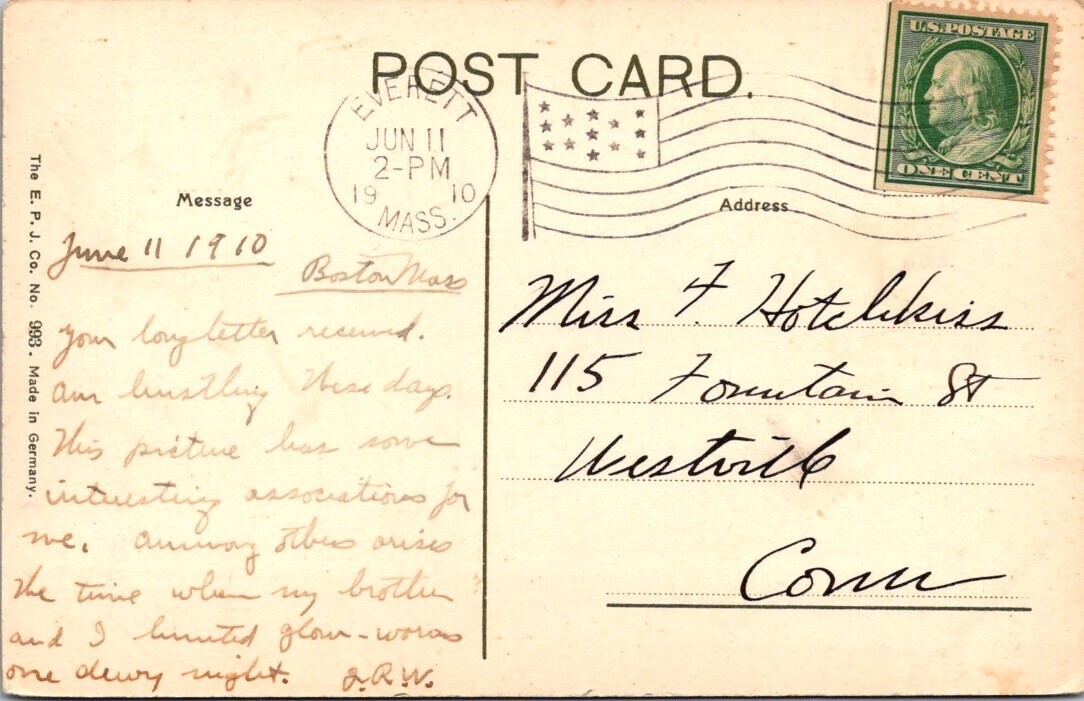 POST CARD.
U.S. POSTAGE
ONE CENT
EVERETT
JUN 11
2-PM
1910
MASS.
Message
Address
The E. P. J. Co. No. 993. Made in Germany.
June 11 1910
Boston Mass
Your long letter received.
Am hustling these days.
This picture has some
interesting associations for
me. Among others arises
the time when my brother
and I hunted glow-worms
one dewy night. J.R.W.
Miss F. Hotchkiss
115 Fountain St
Westville
Conn